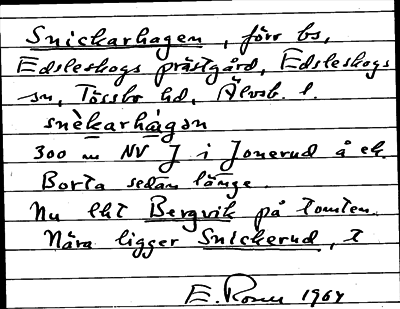 Snickarhagen, förr bs,
Edsleskogs prästgård, Edsleskogs
sn, Tössbo hd, Älvsb. l.
snèkarhàgən
300 m NV J i Jonerud å ek.
Borta sedan länge.
Nu lht Bergvik på tomten.
Nära ligger Snickerud, t
E. 1964